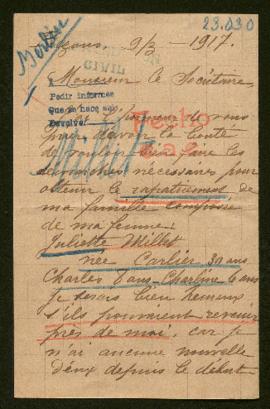 23.030
Berlin
9/3 - 1917.
CIVIL
Monsieur le Secrétaire
Pedir informes
Que se haga
Devolver
de vous
prier d'avoir la bonté
de vouloir bien faire les
démarches nécessaires pour
obtenir le rapatriement de
ma famille composée
de ma femme.
Juliette Millet
née Carlier 30 ans
Charles 8 ans - Charline 6 ans
je serais bien heureux
s'ils pouvaient revenir
près de moi, car je
n'ai aucune nouvelle
d'eux depuis le début